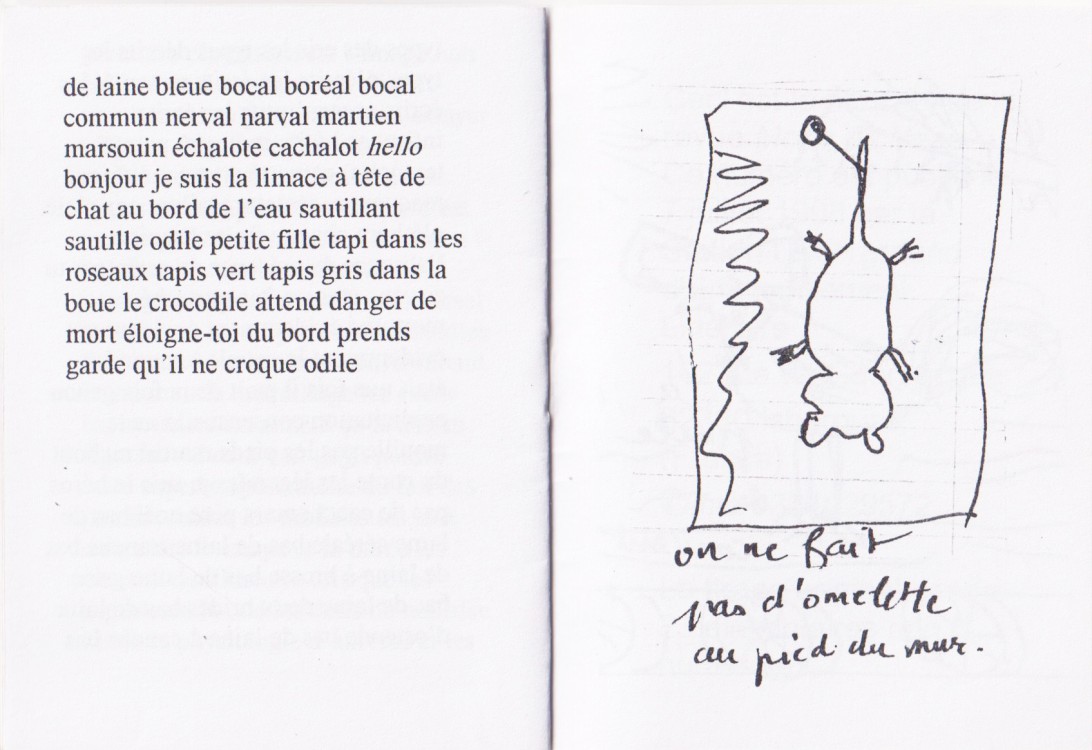 de laine bleue bocal boréal bocal
commun nerval narval martien
marsouin échalote cachalot hello
bonjour je suis la limace à tête de
chat au bord de l’eau sautillant
sautille odile petite fille tapi dans les
roseaux tapis vert tapis gris dans la
boue le crocodile attend danger de
mort éloigne-toi du bord prends
garde qu’il ne croque odile
on ne fait
pas d'omelette
au pied du mur.